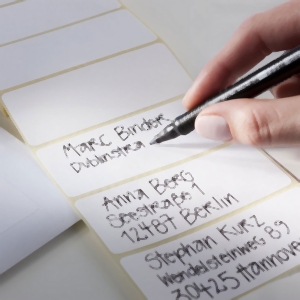 Marc Binder
Dublinstra
Anna Berg
Seestraße 1
12487 Berlin
Stephan Kurz
Wendelsteinweg 89
30425 Hannove